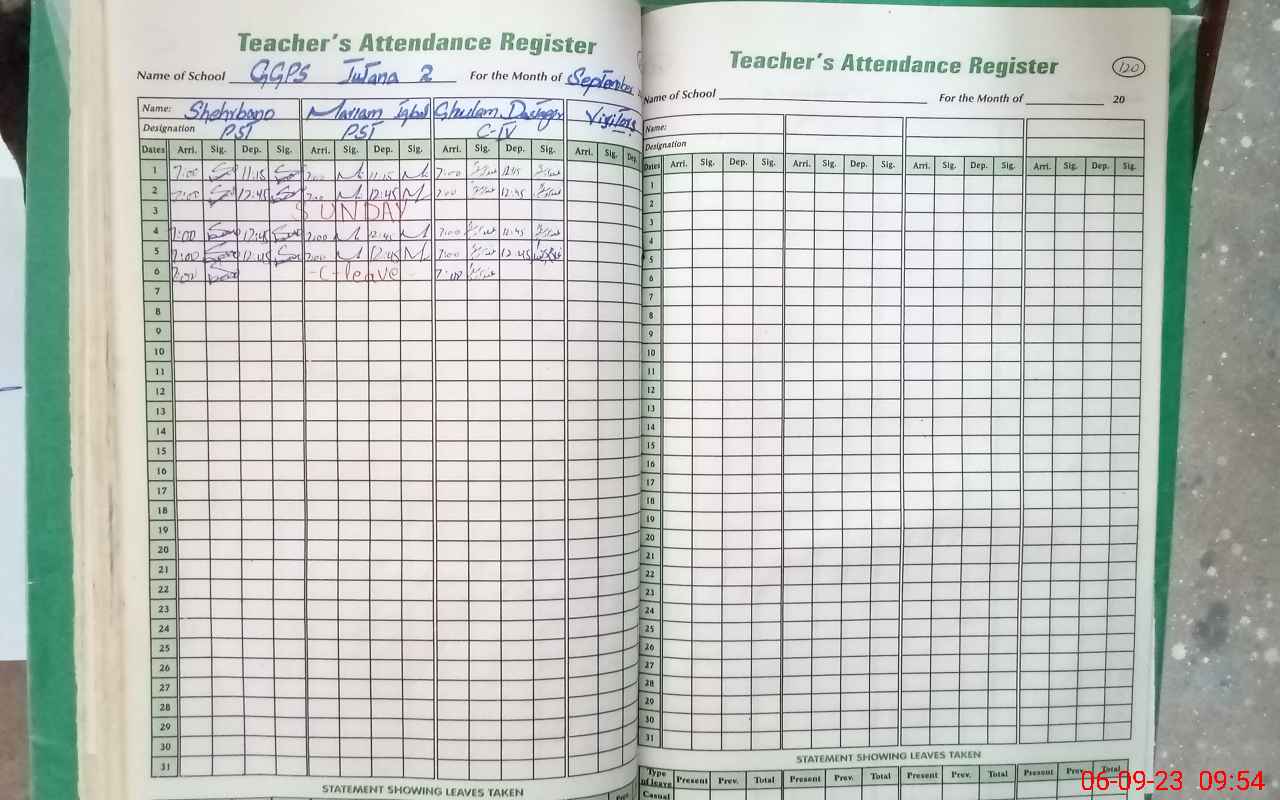 Teacher's Attendance Register
Name of School GGPS Jutana 2 For the Month of September
Name: Shehrbano Mariam Iqbal Ghulam Dastager Visitors
Designation PST PST C-IV
Dates Arri. Sig. Dep. Sig. Arri. Sig. Dep. Sig. Arri. Sig. Dep. Sig. Arri. Sig. Dep.
1 7:00 11:15 7:00 11:15 7:00
2 7:00 12:45 7:00 12:45 7:00 12:45
3 SUNDAY
4 7:00 12:45 7:00 7:00 12:45
5 7:00 12:45 7:00 12:45 7:00 12:45
6 7:00 -C-leave- 7:00
7
8
9
10
11
12
13
14
15
16
17
18
19
20
21
22
23
24
25
26
27
28
29
30
31
STATEMENT SHOWING LEAVES TAKEN
Teacher's Attendance Register 120
Name of School For the Month of 20
Name:
Designation
Dates Arri. Sig. Dep. Sig. Arri. Sig. Dep. Sig. Arri. Sig. Dep. Sig. Arri. Sig. Dep. Sig.
1
2
3
4
5
6
7
8
9
10
11
12
13
14
15
16
17
18
19
20
21
22
23
24
25
26
27
28
29
30
31
STATEMENT SHOWING LEAVES TAKEN
Type of leave Present Prev. Total Present Prev. Total Present Prev. Total Present Prev. Total
Casual
06-09-23 09:54